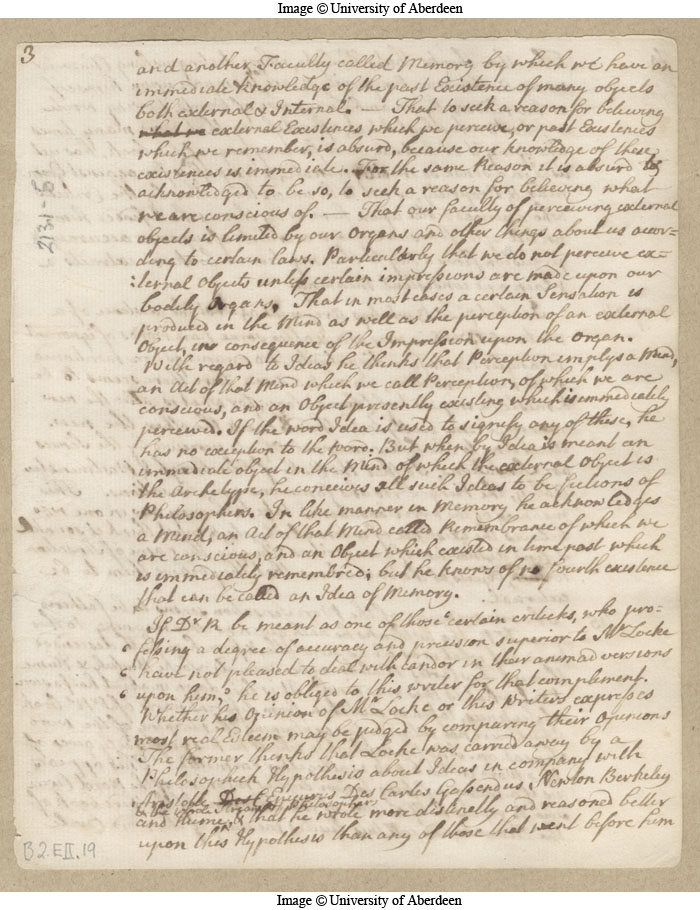 Image © University of Aberdeen
3
and another Faculty called Memory by which we have an
immediate knowledge of the past Existence of many objects
both external & Internal. — That to seek a reason for believing
external Existences which we perceive, or past Existences
which we remember, is absurd, because our knowledge of these
existences is immediate. For the same Reason it is absurd &
acknowledged to be so, to seek a reason for believing what
we are conscious of. — That our faculty of perceiving external
objects is limited by our Organs and other things about us accor-
ding to certain laws. Particularly that we do not perceive ex-
:ternal Objects unless certain impressions are made upon our
bodily Organs. That in most cases a certain Sensation is
produced in the Mind as well as the perception of an external
Object, in consequence of the Impression upon the Organ.
With regard to Ideas he thinks that Perception implys a Mind,
an Act of that Mind which we call Perception, of which we are
conscious, and an Object presently existing which is immediately
perceived. If the word Idea is used to signify any of these, he
has no exception to the word. But when by Idea is meant an
immediate object in the Mind of which the external Object is
the Archetype, he conceives all such Ideas to be fictions of
Philosophers. In like manner in Memory he acknowledges
a Mind, an Act of that Mind called Remembrance of which we
are conscious, and an Object which existed in time past which
is immediately remembred; but he knows of no fourth existence
that can be called an Idea of Memory.
If Dr R be meant as one of those ‘certain criticks, who pro-
‘fessing a degree of accuracy and precision superior to Mr Locke
‘have not pleased to deal with candor in their animadversions
‘upon him,’ he is obliged to this writer for that complement.
Whether his Opinion of Mr Locke or this Writers expresses
most real esteem may be judged by comparing their Opinions
The former thinks that Locke was carried away by a
Philosophick Hypothesis about Ideas in company with
Aristotle Epicurus Des Cartes Gassendus, Newton Berkeley
Philosophers
and Hume, & that he wrote more distinctly and reasoned better
upon this Hypothesis than any of those that went before him
2131-8
B2.EII.19
Image © University of Aberdeen